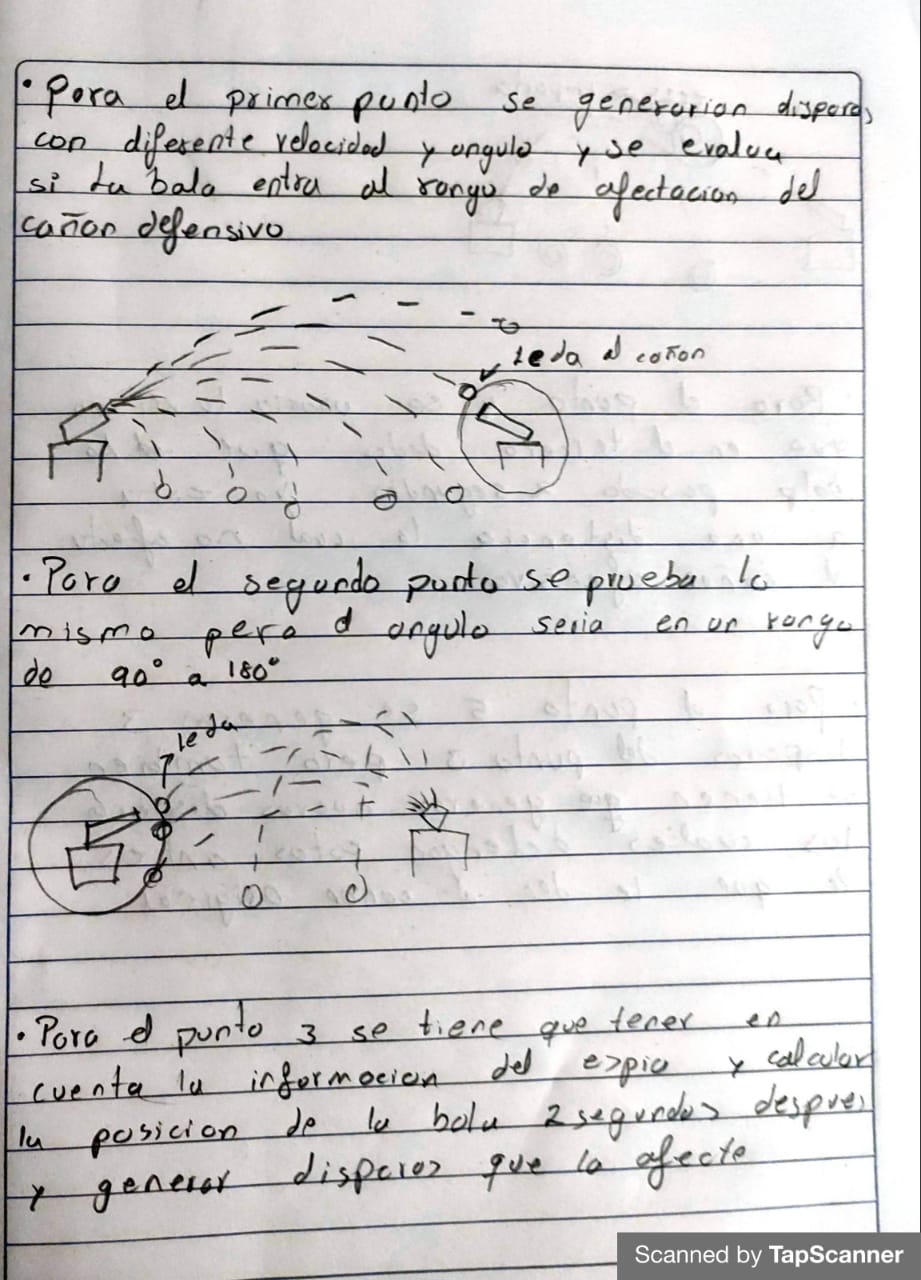 • Para el primer punto se generarian disparos
con diferente velocidad y angulo y se evalua
si la bala entra al rango de afectacion del
cañon defensivo
le da al cañon
• Para el segundo punto se prueba lo
mismo pero el angulo seria en un rango
de 90° a 180°
le da
• Para el punto 3 se tiene que tener en
cuenta la informacion del espia y calcular
la posicion de la bala 2 segundos despues
y generar disparos que la afecte
Scanned by TapScanner